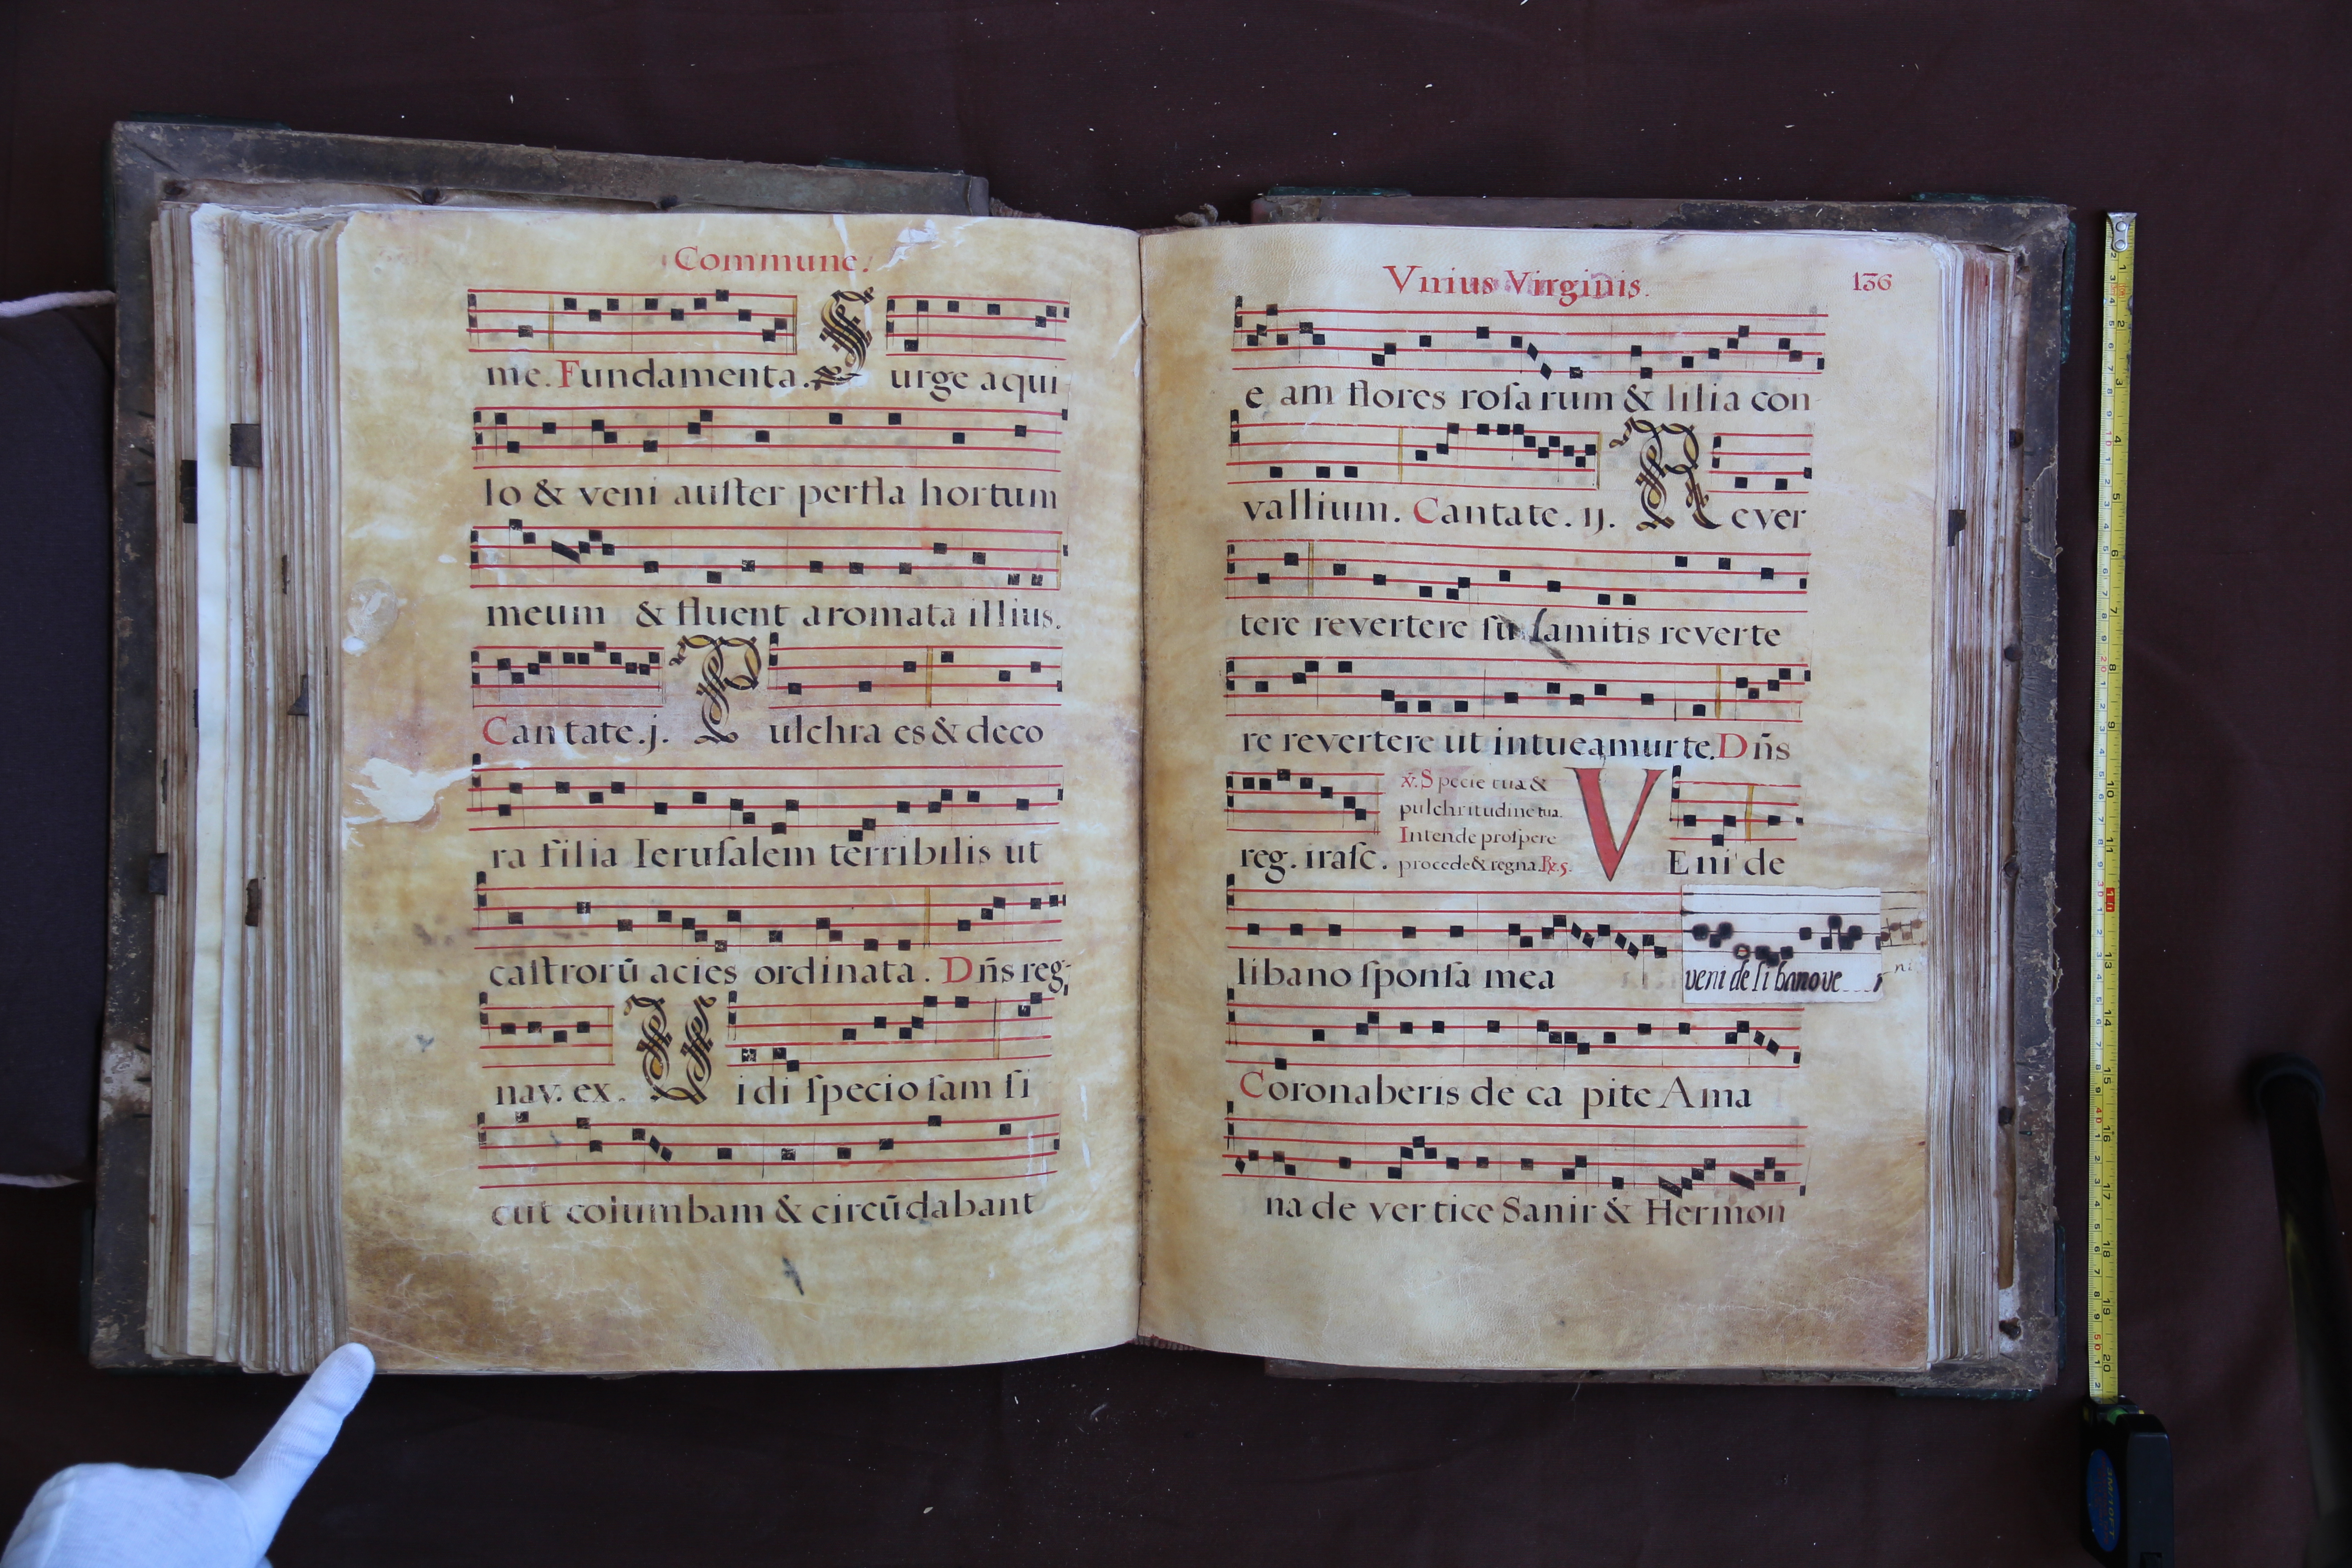 Commune.
me. Fundamenta. Surge aqui
lo & veni auſter perfla hortum
meum & fluent aromata illius.
Cantate. j. Pulchra es & deco
ra filia Ieruſalem terribilis ut
caſtrorū acies ordinata. Dn̄s reg
nav. ex. Vidi ſpecioſam ſi
cut columbam & circūdabant
Vnius Virginis.
136
e am flores roſarum & lilia con
vallium. Cantate. ij. Rever
tere revertere ſu ſamitis reverte
re revertere ut intueamur te. Dn̄s
reg. iraſc.
℣. Specie tua &
pulchritudine tua.
Intende proſpere
procede & regna. ℟. 5.
VEni de
libano ſponſa mea veni de libano ve
ni
Coronaberis de ca pite Ama
na de vertice Sanir & Hermon